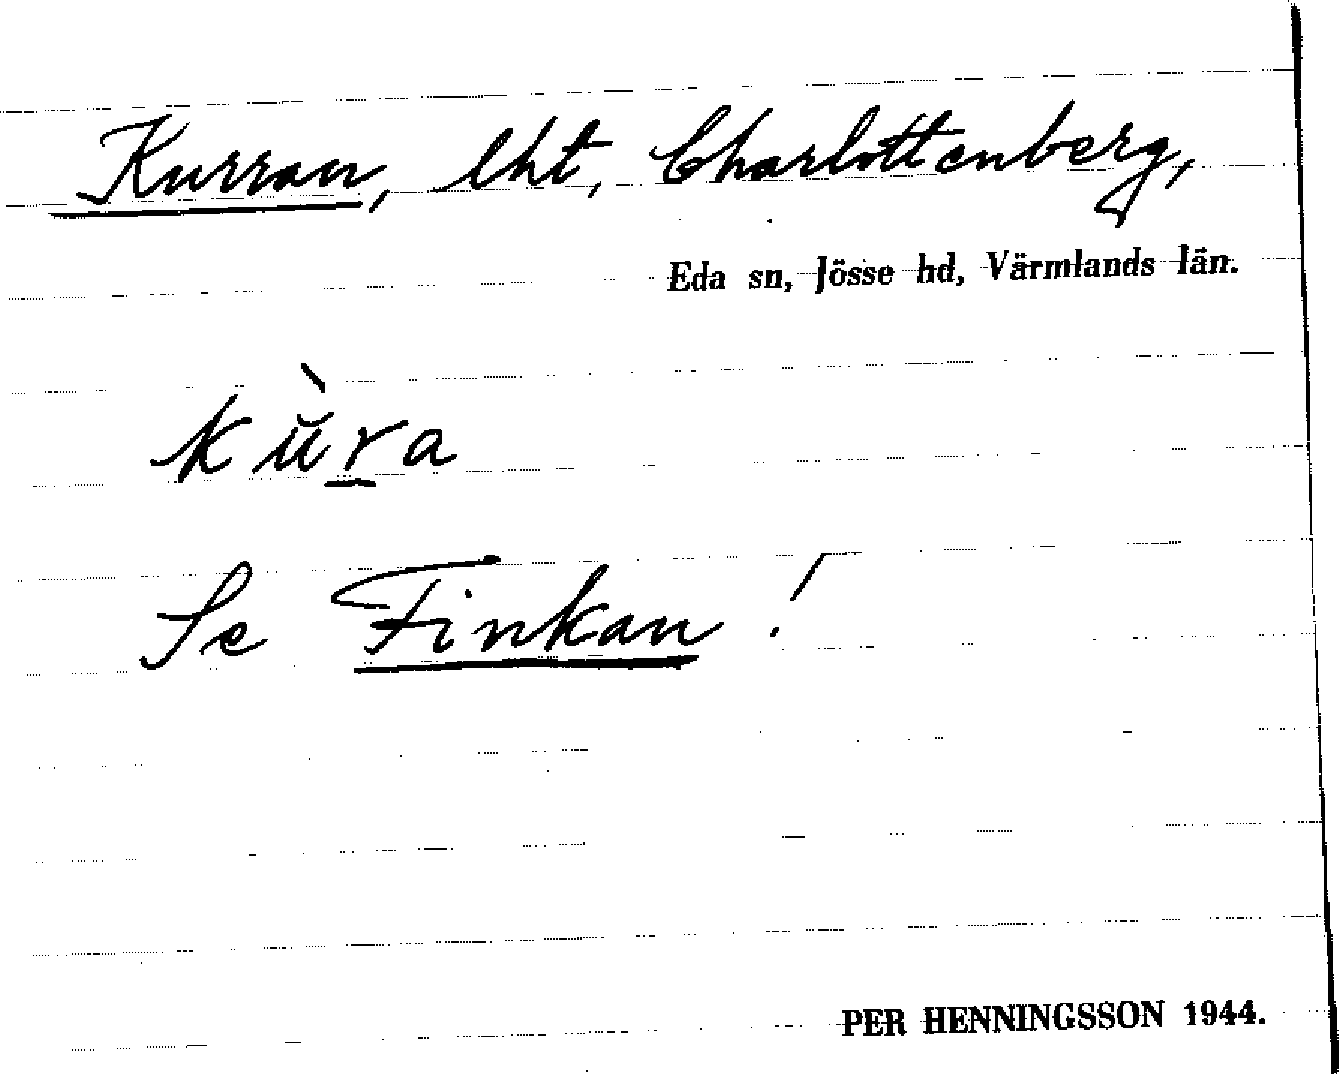 Kurran, lht, Charlottenberg,
Eda sn, Jösse hd, Värmlands län.
kŭ̀r̲a
Se Finkan!
PER HENNINGSSON 1944.